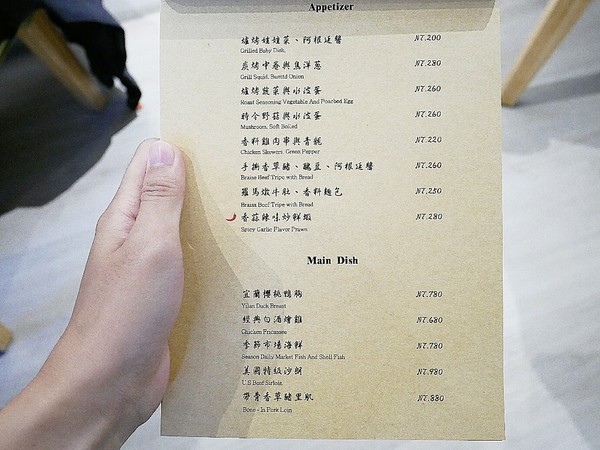 Appetizer
爐烤娃娃菜、阿根廷醬 NT.200
Grilled Baby Dish,
炭烤中卷與焦洋蔥 NT.280
Grill Squid, Burntd Onion
爐烤蔬菜與水波蛋 NT.260
Roast Seasoning Vegetable And Poached Egg
時令野菇與水波蛋 NT.260
Mushroom, Soft Boiled
香料雞肉串與青椒 NT.220
Chicken Skewers, Green Pepper
手撕香草豬、醜豆、阿根廷醬 NT.260
Braise Beef Tripe with Bread
羅馬燉牛肚、香料麵包 NT.250
Braise Beef Tripe with Bread
香蒜辣味炒鮮蝦 NT.280
Spicy Garlic Flavor Prawn
Main Dish
宜蘭櫻桃鴨胸 NT.780
Yilan Duck Breast
經典白酒燴雞 NT.680
Chicken Fricassee
季節市場海鮮 NT.780
Season Daily Market Fish And Shell Fish
美國特級沙朗 NT.980
U.S Beef Sirloin
帶骨香草豬里肌 NT.880
Bone - In Pork Loin